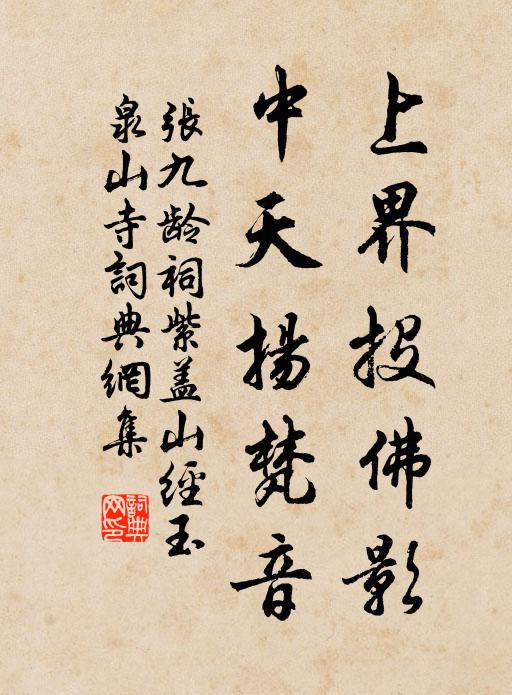 上界投佛影
中天揚梵音
張九龄祠紫蓋山經玉
泉山寺詞典網集
詞典
网印